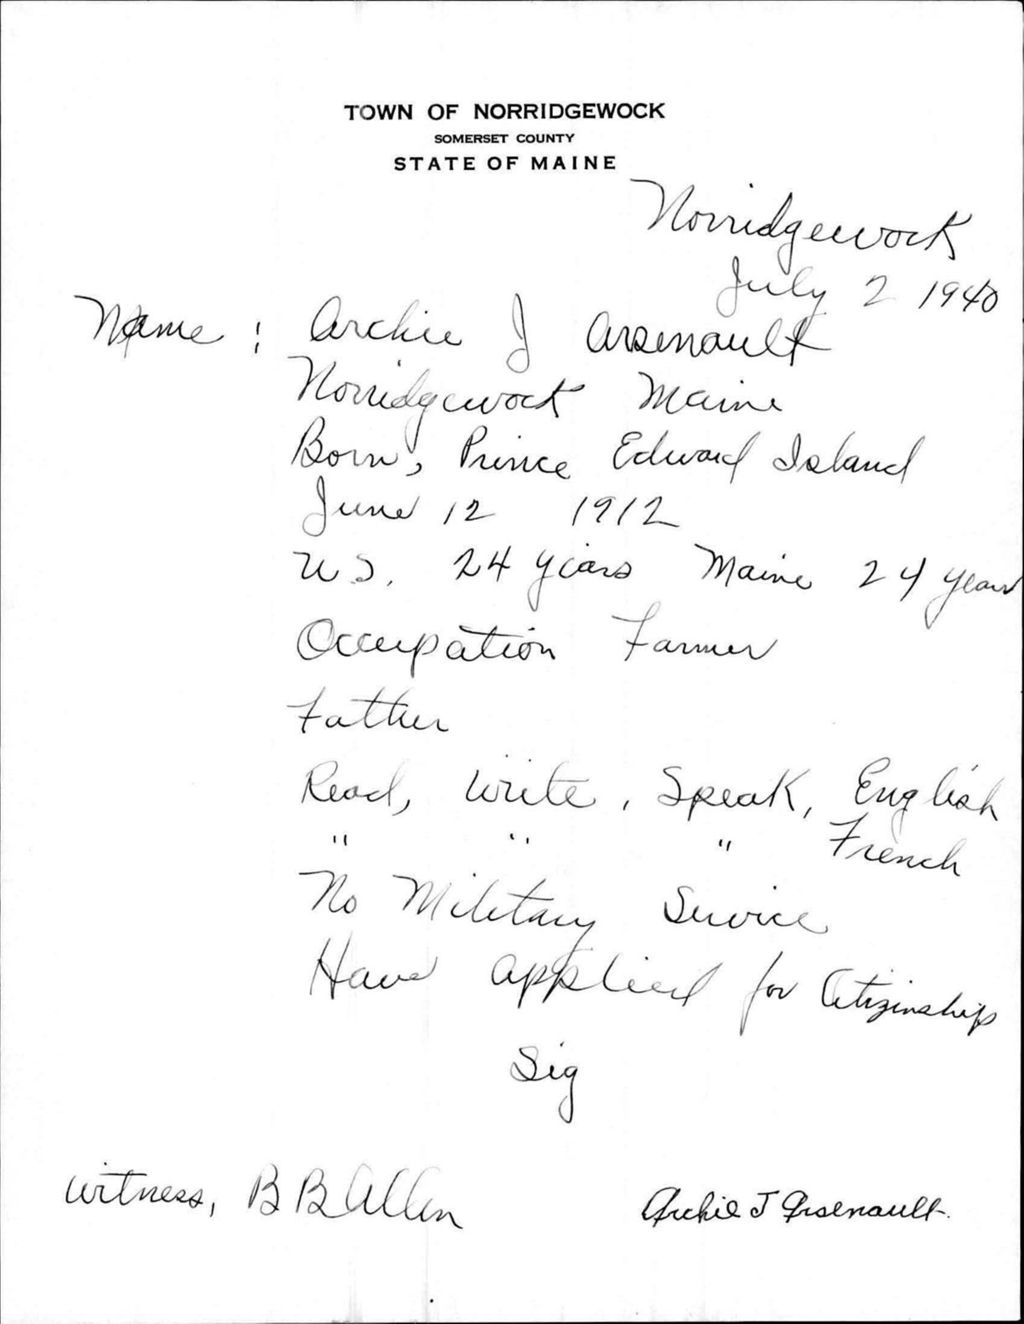 TOWN OF NORRIDGEWOCK
SOMERSET COUNTY
STATE OF MAINE
Norridgewock
July 2 1940
Name : Archie J Arsenault
Norridgewock Maine
Born, Prince Edward Island
June 12 1912
U S. 24 years Maine 24 years
Occupation Farmer
Father
Read, Write, Speak, English
" " " French
No Military Service
Have applied for Citizinship
Sig
Witness, B B Allen
Archie J Arsenault.